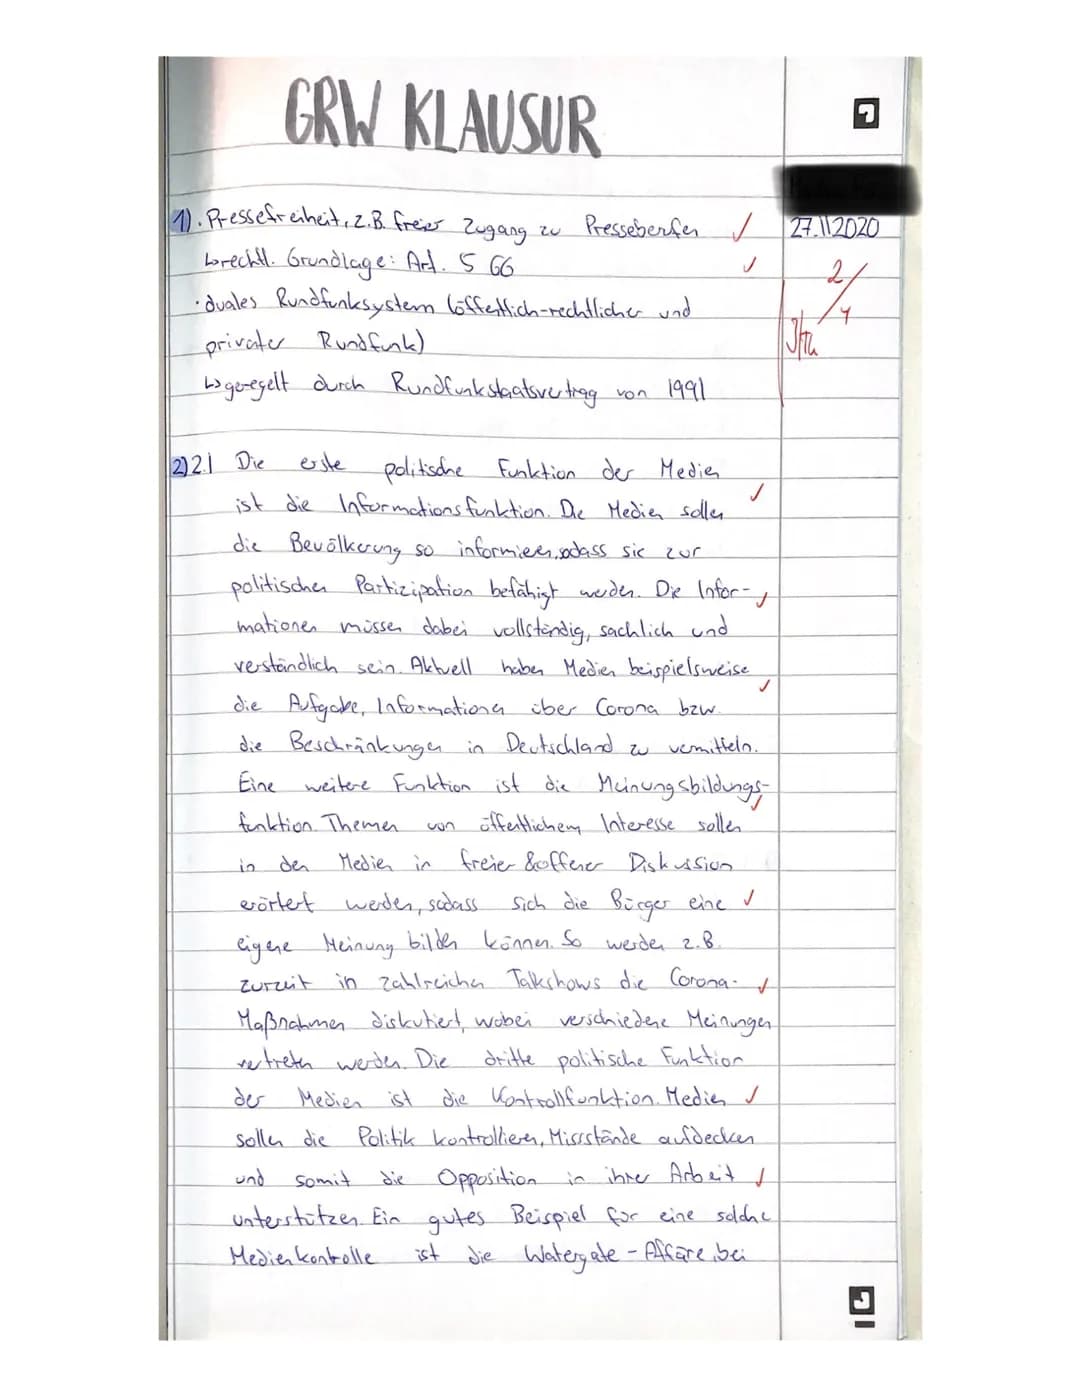 GRW KLAUSUR
27.11.2020
1). Pressefreiheit, z.B. freier Zugang zu Presseberufen
↳rechtl. Grundlage: Art. 5 GG
2/4
• duales Rundfunksystem (öffentlich-rechtlicher und
privater Rundfunk)
↳geregelt durch Rundfunkstaatsvertrag von 1991
2) 2.1 Die erste politische Funktion der Medien
ist die Informationsfunktion. Die Medien sollen
die Bevölkerung so informieren, sodass sie zur
politischen Partizipation befähigt werden. Die Infor-
mationen müssen dabei vollständig, sachlich und
verständlich sein. Aktuell haben Medien beispielsweise
die Aufgabe, Informationen über Corona bzw.
die Beschränkungen in Deutschland zu vermitteln.
Eine weitere Funktion ist die Meinungsbildungs-
funktion. Themen von öffentlichem Interesse sollen
in den Medien in freier & offener Diskussion
erörtert werden, sodass sich die Bürger eine
eigene Meinung bilden können. So werden z.B.
zurzeit in zahlreichen Talkshows die Corona-
Maßnahmen diskutiert, wobei verschiedene Meinungen
vertreten werden. Die dritte politische Funktion
der Medien ist die Kontrollfunktion. Medien
sollen die Politik kontrollieren, Missstände aufdecken
und somit die Opposition in ihrer Arbeit
unterstützen. Ein gutes Beispiel für eine solche
Medienkontrolle ist die Watergate-Affäre, bei